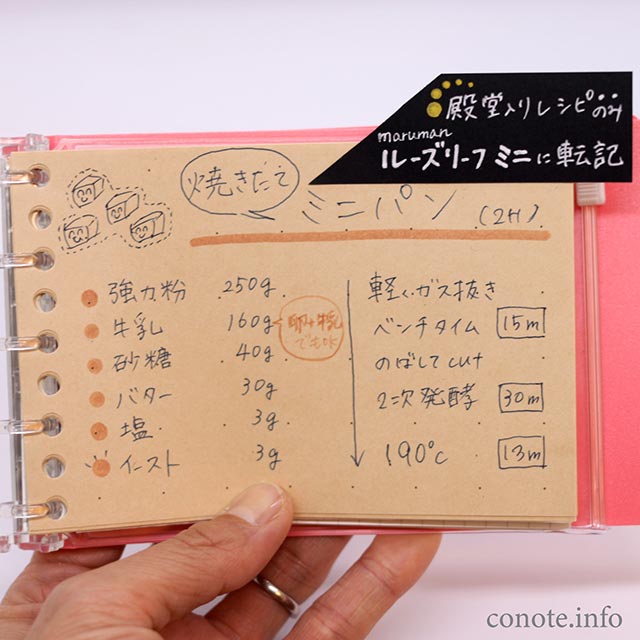 殿堂入りレシピのみ
maruman
ルーズリーフ ミニに転記
焼きたて
ミニパン (2H)
強力粉 250g
牛乳 160g
卵+牛乳
でもOK
砂糖 40g
バター 30g
塩 3g
イースト 3g
軽くガス抜き
ベンチタイム 15m
のばしてcut
2次発酵 30m
190℃ 13m
conote.info